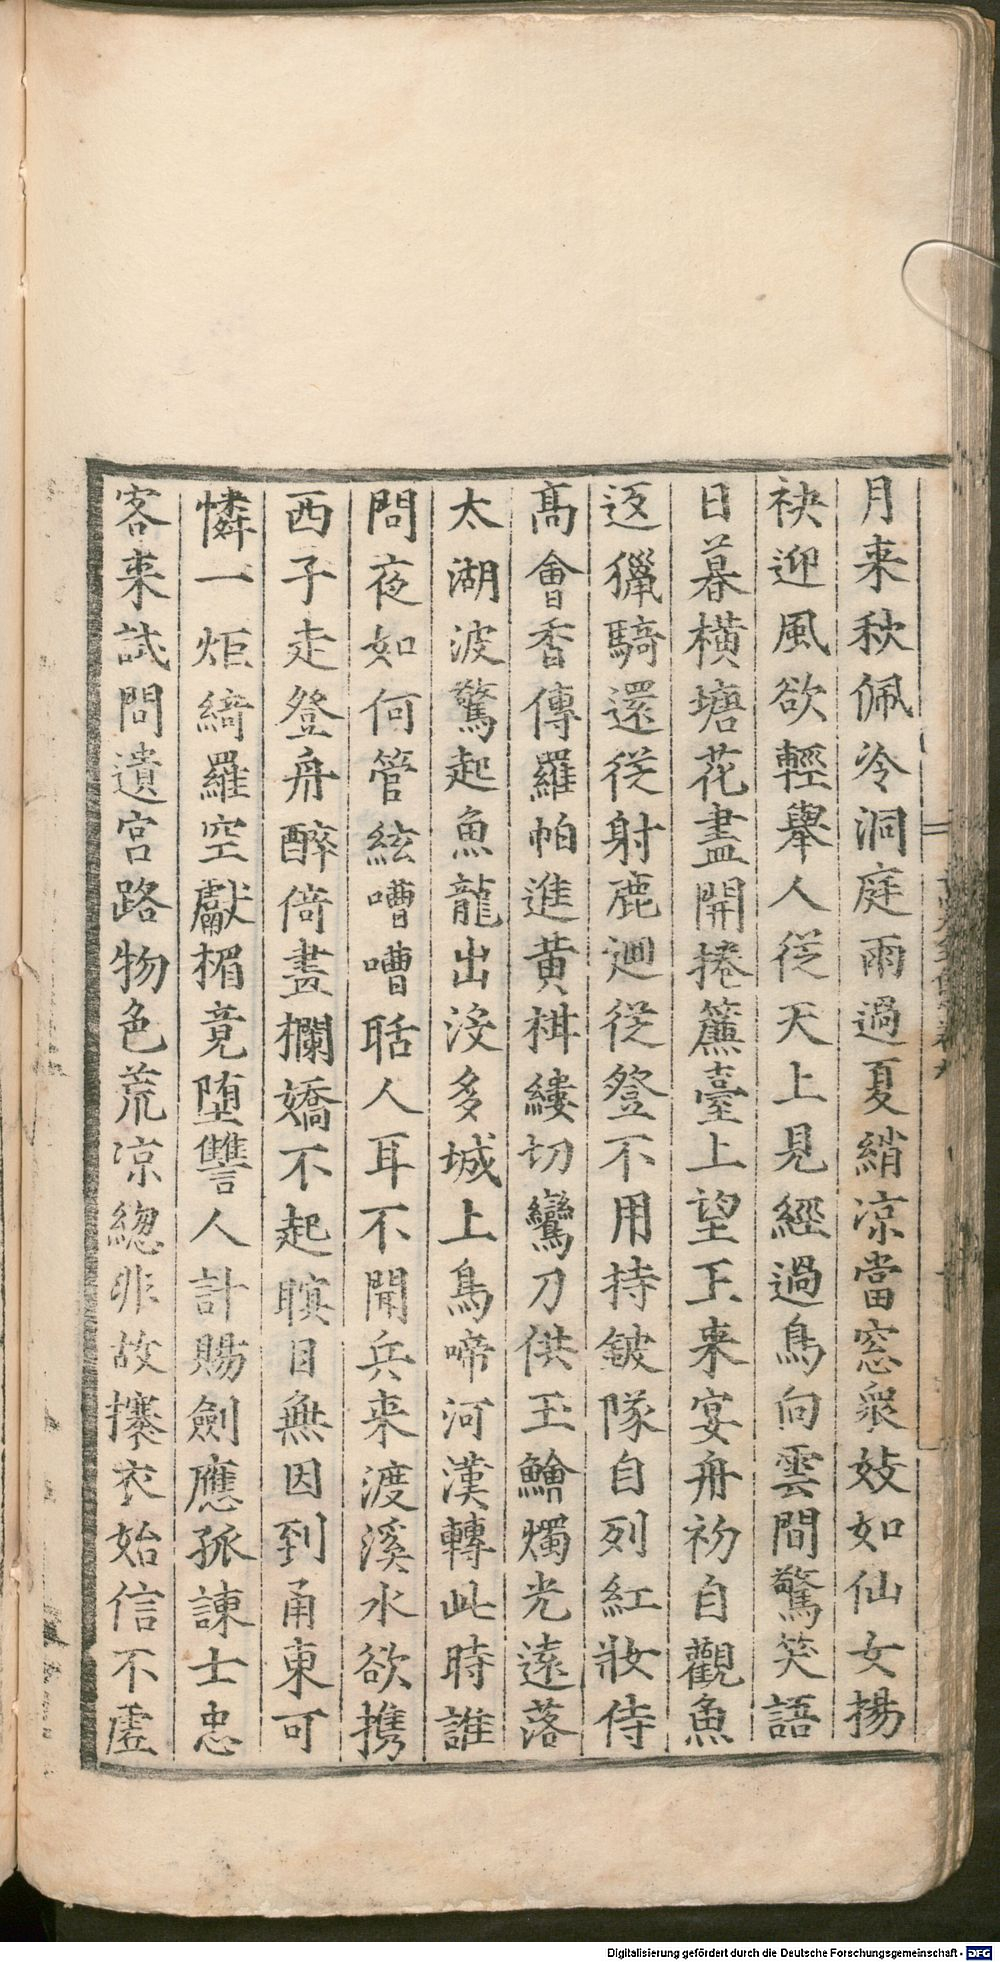 月来秋佩冷洞庭雨過夏綃凉當窓衆妓如仙女揚
袂迎風欲輕舉人從天上見經過鳥向雲間驚笑語
日暮横塘花盡開捲簾臺上望王来宴舟初自觀魚
返獵騎還從射鹿廻從登不用持鈹隊自列紅妝侍
高會香傳羅帕進黄柑縷切鸞刀供玉鱠燭光遠落
太湖波驚起魚龍出没多城上烏啼河漢轉此時誰
問夜如何管絃嘈嘈聒人耳不聞兵来渡溪水欲携
西子走登舟醉倚畫欄嬌不起瞑目無因到甬東可
憐一炬綺羅空獻楣竟堕讐人計賜劍應孤諫士忠
客来試問遺宫路物色荒凉緫非故攓衣始信不虗
Digitalisierung gefördert durch die Deutsche Forschungsgemeinschaft - DFG